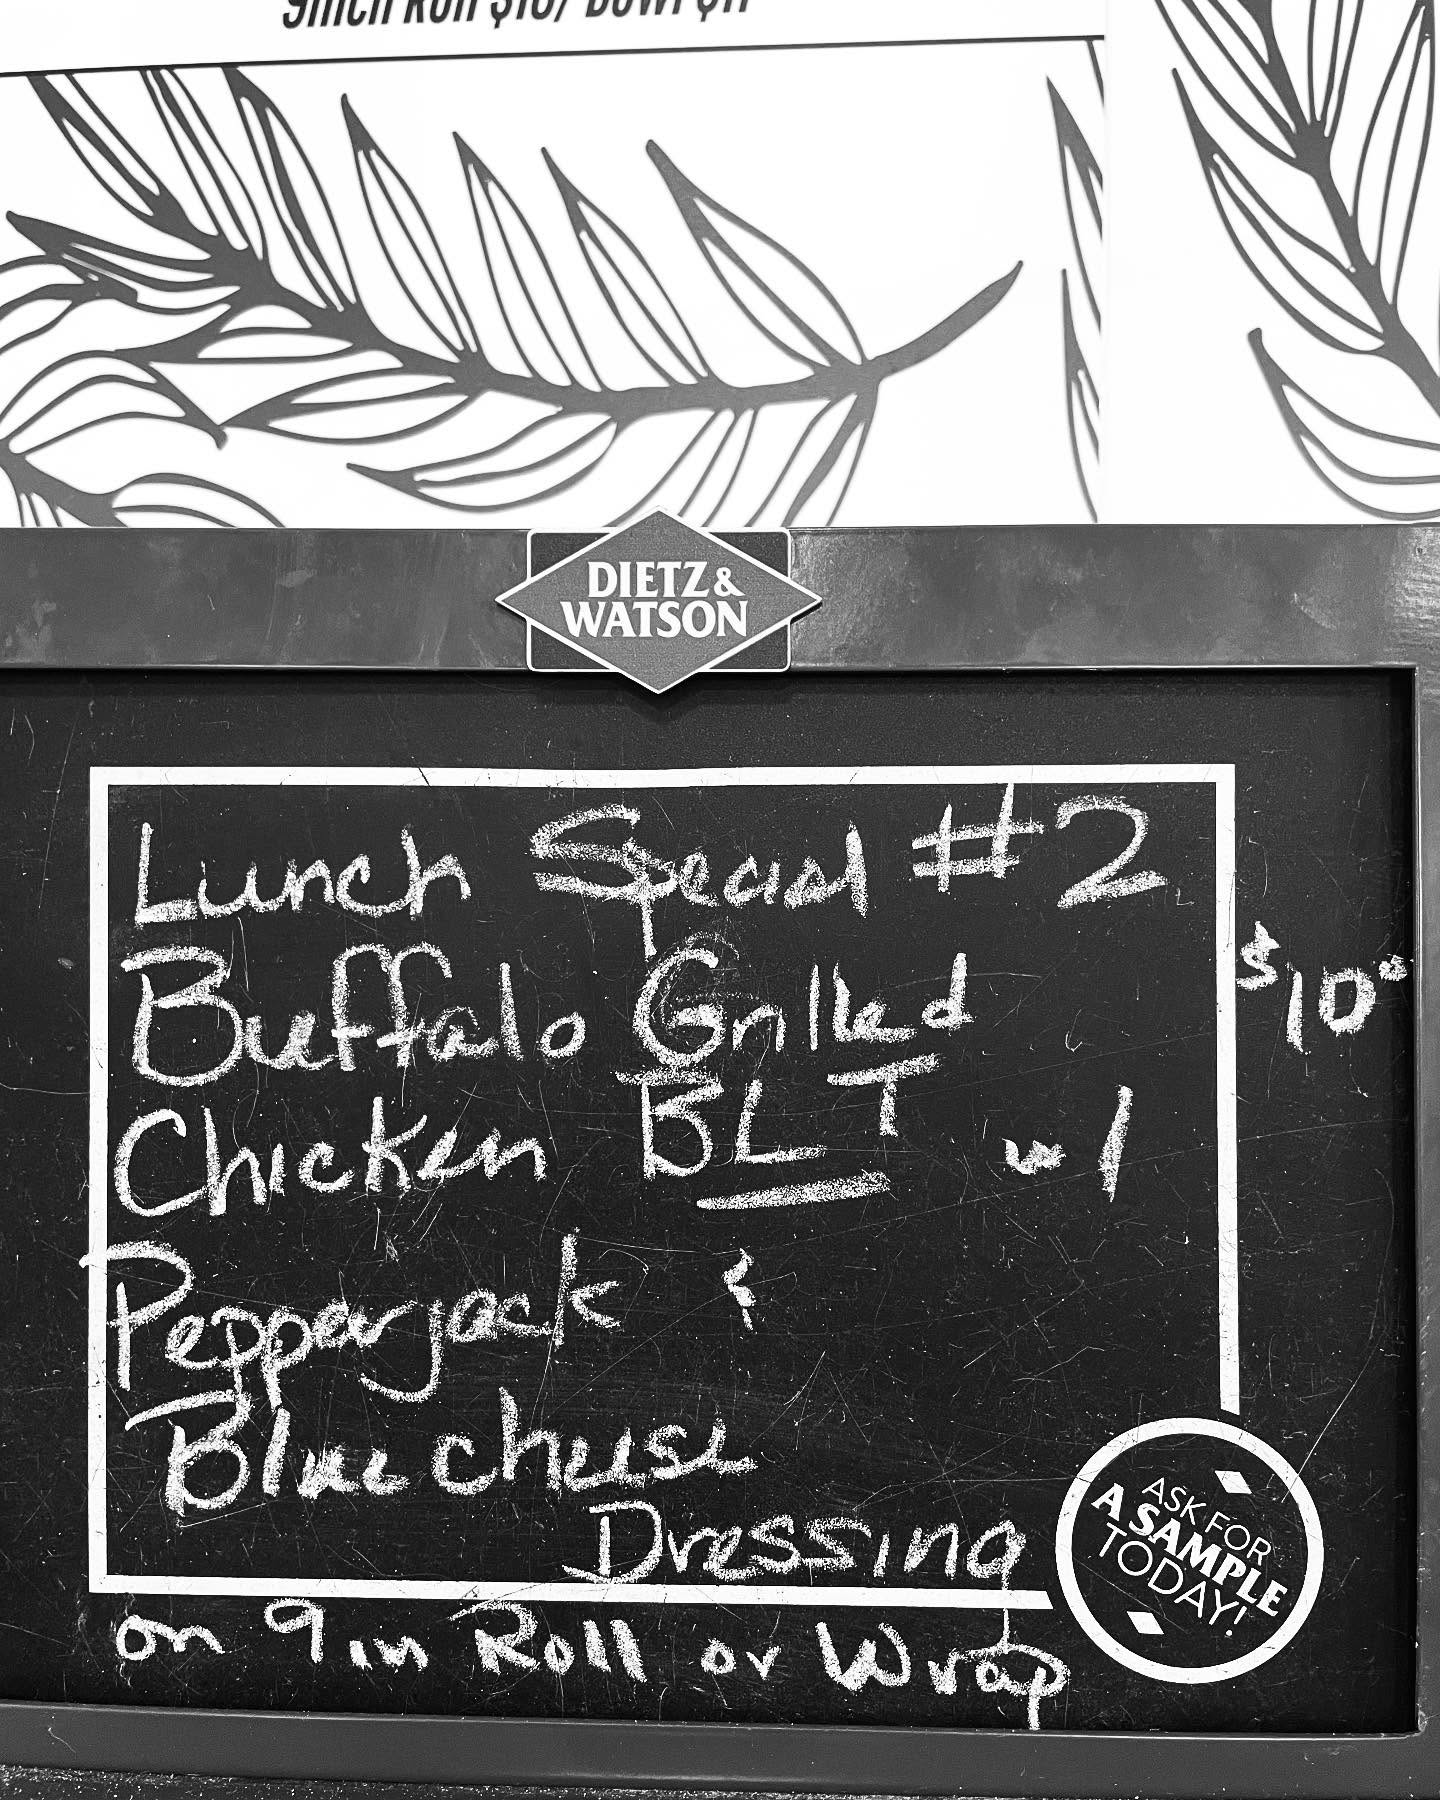 9inch Roll $10/ Bowl $11
DIETZ &
WATSON
Lunch Special #2
Buffalo Grilled $10⁰
Chicken BLT w/
Pepperjack &
Blue cheese
Dressing
on 9 in Roll or Wrap
ASK FOR
A SAMPLE
TODAY!